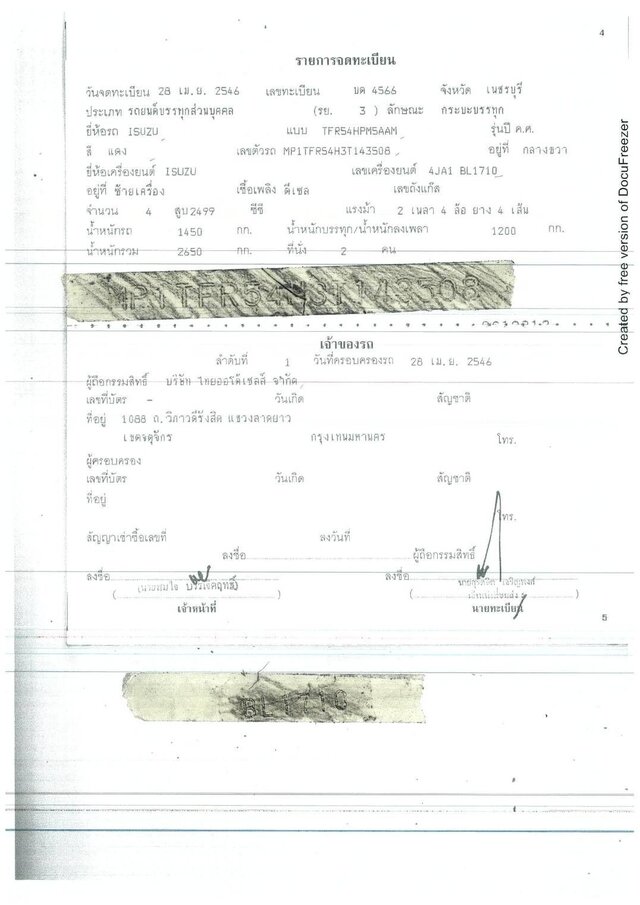 4
รายการจดทะเบียน
วันจดทะเบียน 28 เม.ย. 2546 เลขทะเบียน บด 4566 จังหวัด เพชรบุรี
ประเภท รถยนต์บรรทุกส่วนบุคคล (รย. 3 ) ลักษณะ กระบะบรรทุก
ยี่ห้อรถ ISUZU แบบ TFR54HPM5AAM รุ่นปี ค.ศ.
สี แดง เลขตัวรถ MP1TFR54H3T143508 อยู่ที่ กลางขวา
ยี่ห้อเครื่องยนต์ ISUZU เลขเครื่องยนต์ 4JA1 BL1710
อยู่ที่ ซ้ายเครื่อง เชื้อเพลิง ดีเซล เลขถังแก๊ส
จำนวน 4 สูบ 2499 ซีซี แรงม้า 2 เพลา 4 ล้อ ยาง 4 เส้น
น้ำหนักรถ 1450 กก. น้ำหนักบรรทุก/น้ำหนักลงเพลา 1200 กก.
น้ำหนักรวม 2650 กก. ที่นั่ง 2 คน
MP1TFR54H3T143508
เจ้าของรถ
ลำดับที่ 1 วันที่ครอบครองรถ 28 เม.ย. 2546
ผู้ถือกรรมสิทธิ์ บริษัท ไทยออโต้เซลส์ จำกัด
เลขที่บัตร - วันเกิด สัญชาติ
ที่อยู่ 1088 ถ.วิภาวดีรังสิต แขวงลาดยาว
เขตจตุจักร กรุงเทพมหานคร โทร.
ผู้ครอบครอง
เลขที่บัตร วันเกิด สัญชาติ
ที่อยู่
โทร.
สัญญาเช่าซื้อเลขที่ ลงวันที่
ลงชื่อ ผู้ถือกรรมสิทธิ์
ลงชื่อ ลงชื่อ
(นายสมใจ
เจ้าหน้าที่ นายทะเบียน
5
BL1710
Created by free version of DocuFreezer